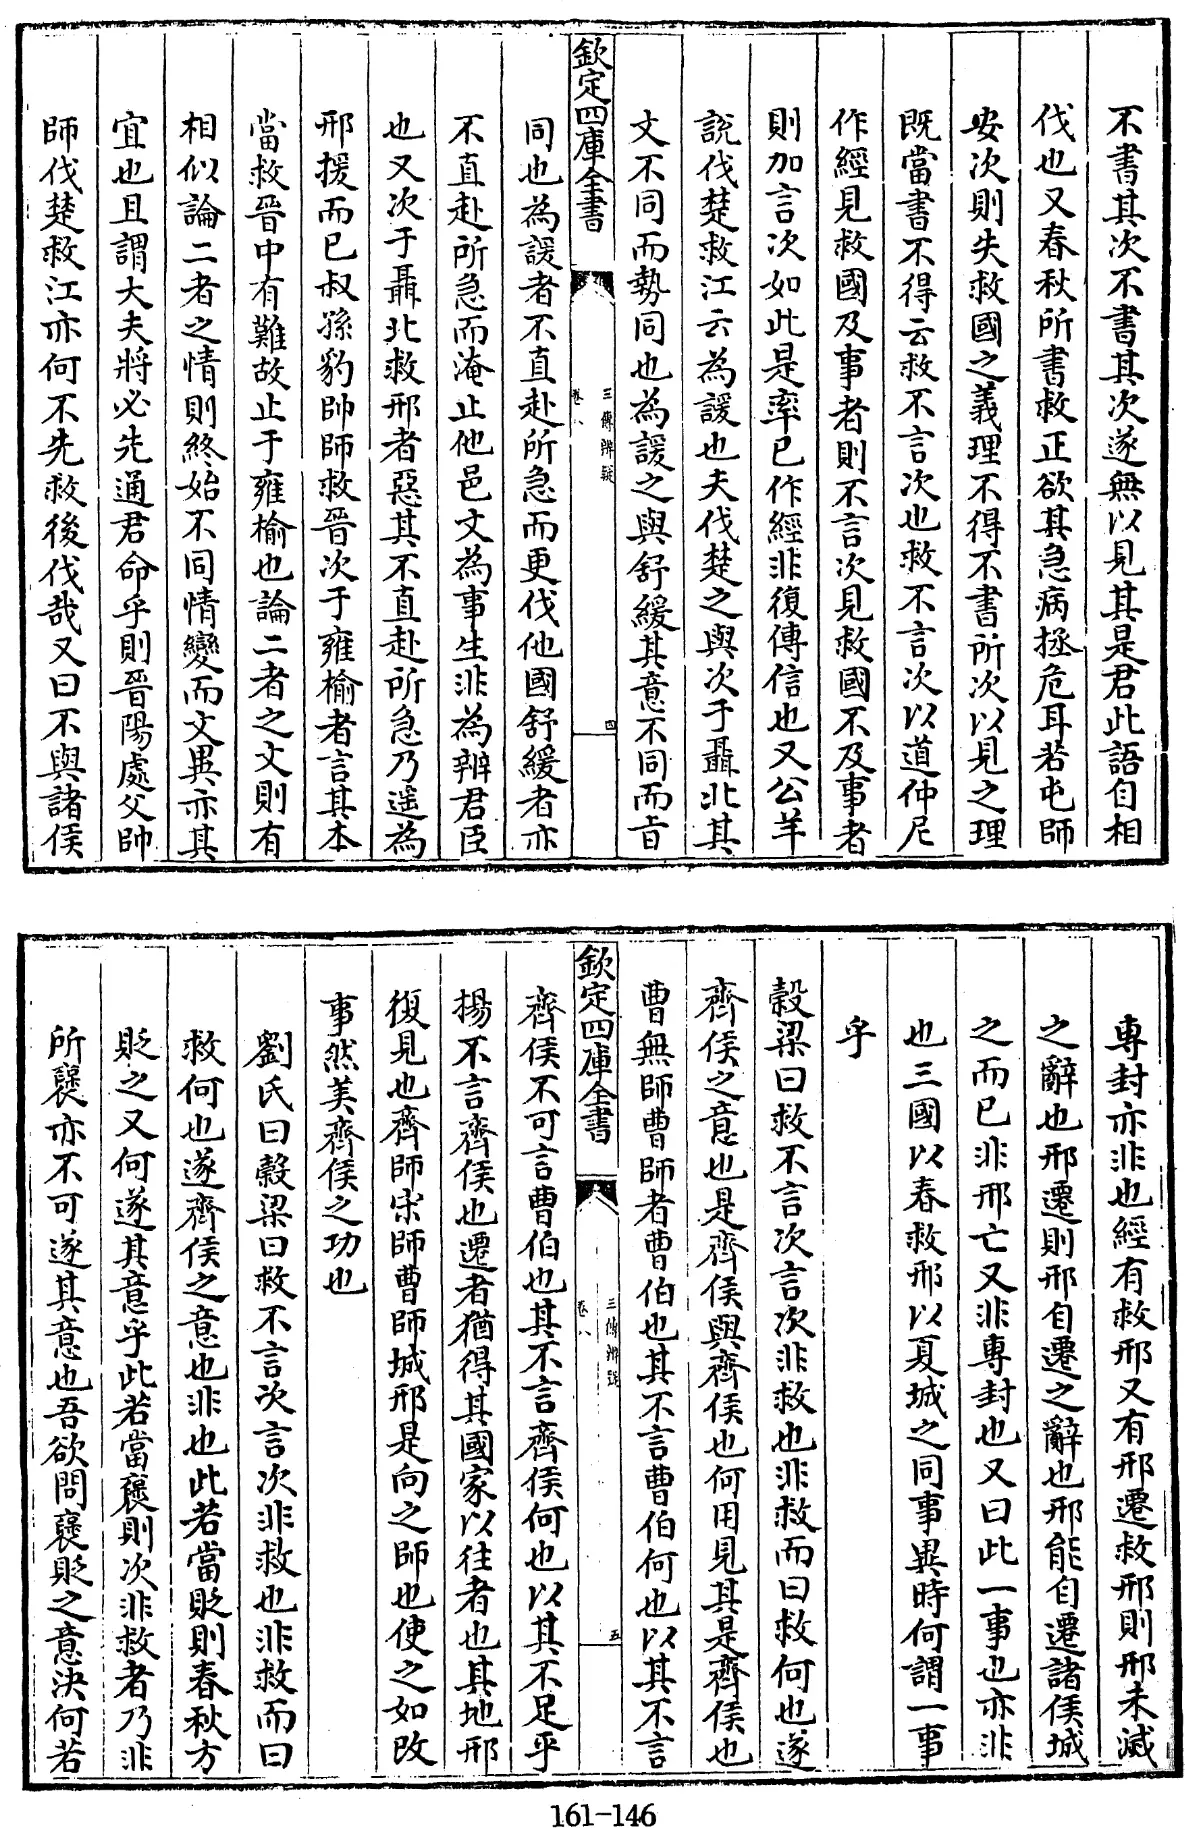 不書其次不書其次遂無以見其是君此語自相
伐也又春秋所書救正欲其急病拯危耳若屯師
安次則失救國之義理不得不書所次以見之理
既當書不得云救不言次也救不言次以道仲尼
作經見救國及事者則不言次見救國不及事者
則加言次如此是率已作經非復傳信也又公羊
說伐楚救江云為諼也夫伐楚之與次于聶北其
文不同而勢同也為諼之與舒緩其意不同而旨
欽定四庫全書
三傳辨疑
卷八
四
同也為諼者不直赴所急而更伐他國舒緩者亦
不直赴所急而淹止他邑文為事生非為辨君臣
也又次于聶北救邢者惡其不直赴所急乃遥為
邢援而已叔孫豹帥師救晉次于雍榆者言其本
當救晉中有難故止于雍榆也論二者之文則有
相似論二者之情則終始不同情變而文異亦其
宜也且謂大夫將必先通君命乎則晉陽處父帥
師伐楚救江亦何不先救後伐哉又曰不與諸侯
專封亦非也經有救邢又有邢遷救邢則邢未滅
之辭也邢遷則邢自遷之辭也邢能自遷諸侯城
之而已非邢亡又非專封也又曰此一事也亦非
也三國以春救邢以夏城之同事異時何謂一事
乎
穀梁曰救不言次言次非救也非救而曰救何也遂
齊侯之意也是齊侯與齊侯也何用見其是齊侯也
曹無師曹師者曹伯也其不言曹伯何也以其不言
欽定四庫全書
三傳辨疑
卷八
五
齊侯不可言曹伯也其不言齊侯何也以其不足乎
揚不言齊侯也遷者猶得其國家以往者也其地邢
復見也齊師宋師曹師城邢是向之師也使之如改
事然美齊侯之功也
劉氏曰穀梁曰救不言次言次非救也非救而曰
救何也遂齊侯之意也非也此若當貶則春秋方
貶之又何遂其意乎此若當襃則次非救者乃非
所襃亦不可遂其意也吾欲問襃貶之意決何若
161-146